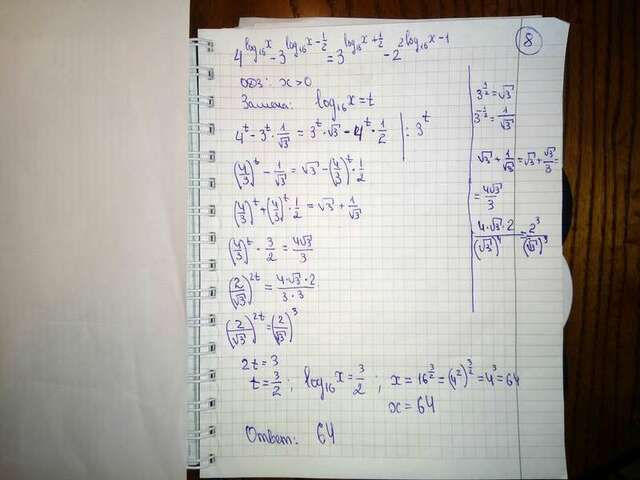 8
4^{log_{16} x} - 3^{log_{16} x - 1/2} = 3^{log_{16} x + 1/2} - 2^{2 log_{16} x - 1}
ОДЗ: x > 0
Замена: log_{16} x = t
4^t - 3^t · 1/√3 = 3^t · √3 - 4^t · 1/2 | : 3^t
(4/3)^t - 1/√3 = √3 - (4/3)^t · 1/2
(4/3)^t + (4/3)^t · 1/2 = √3 + 1/√3
(4/3)^t · 3/2 = 4√3/3
(2/√3)^{2t} = 4·√3·2/3·3
(2/√3)^{2t} = (2/√3)^3
2t = 3
t = 3/2 ; log_{16} x = 3/2 ; x = 16^{3/2} = (4^2)^{3/2} = 4^3 = 64
x = 64
Ответ: 64
3^{1/2} = √3
3^{-1/2} = 1/√3
√3 + 1/√3 = √3 + √3/3 =
= 4√3/3
4·√3·2/(√3)^4 = 2^3/(√3)^3